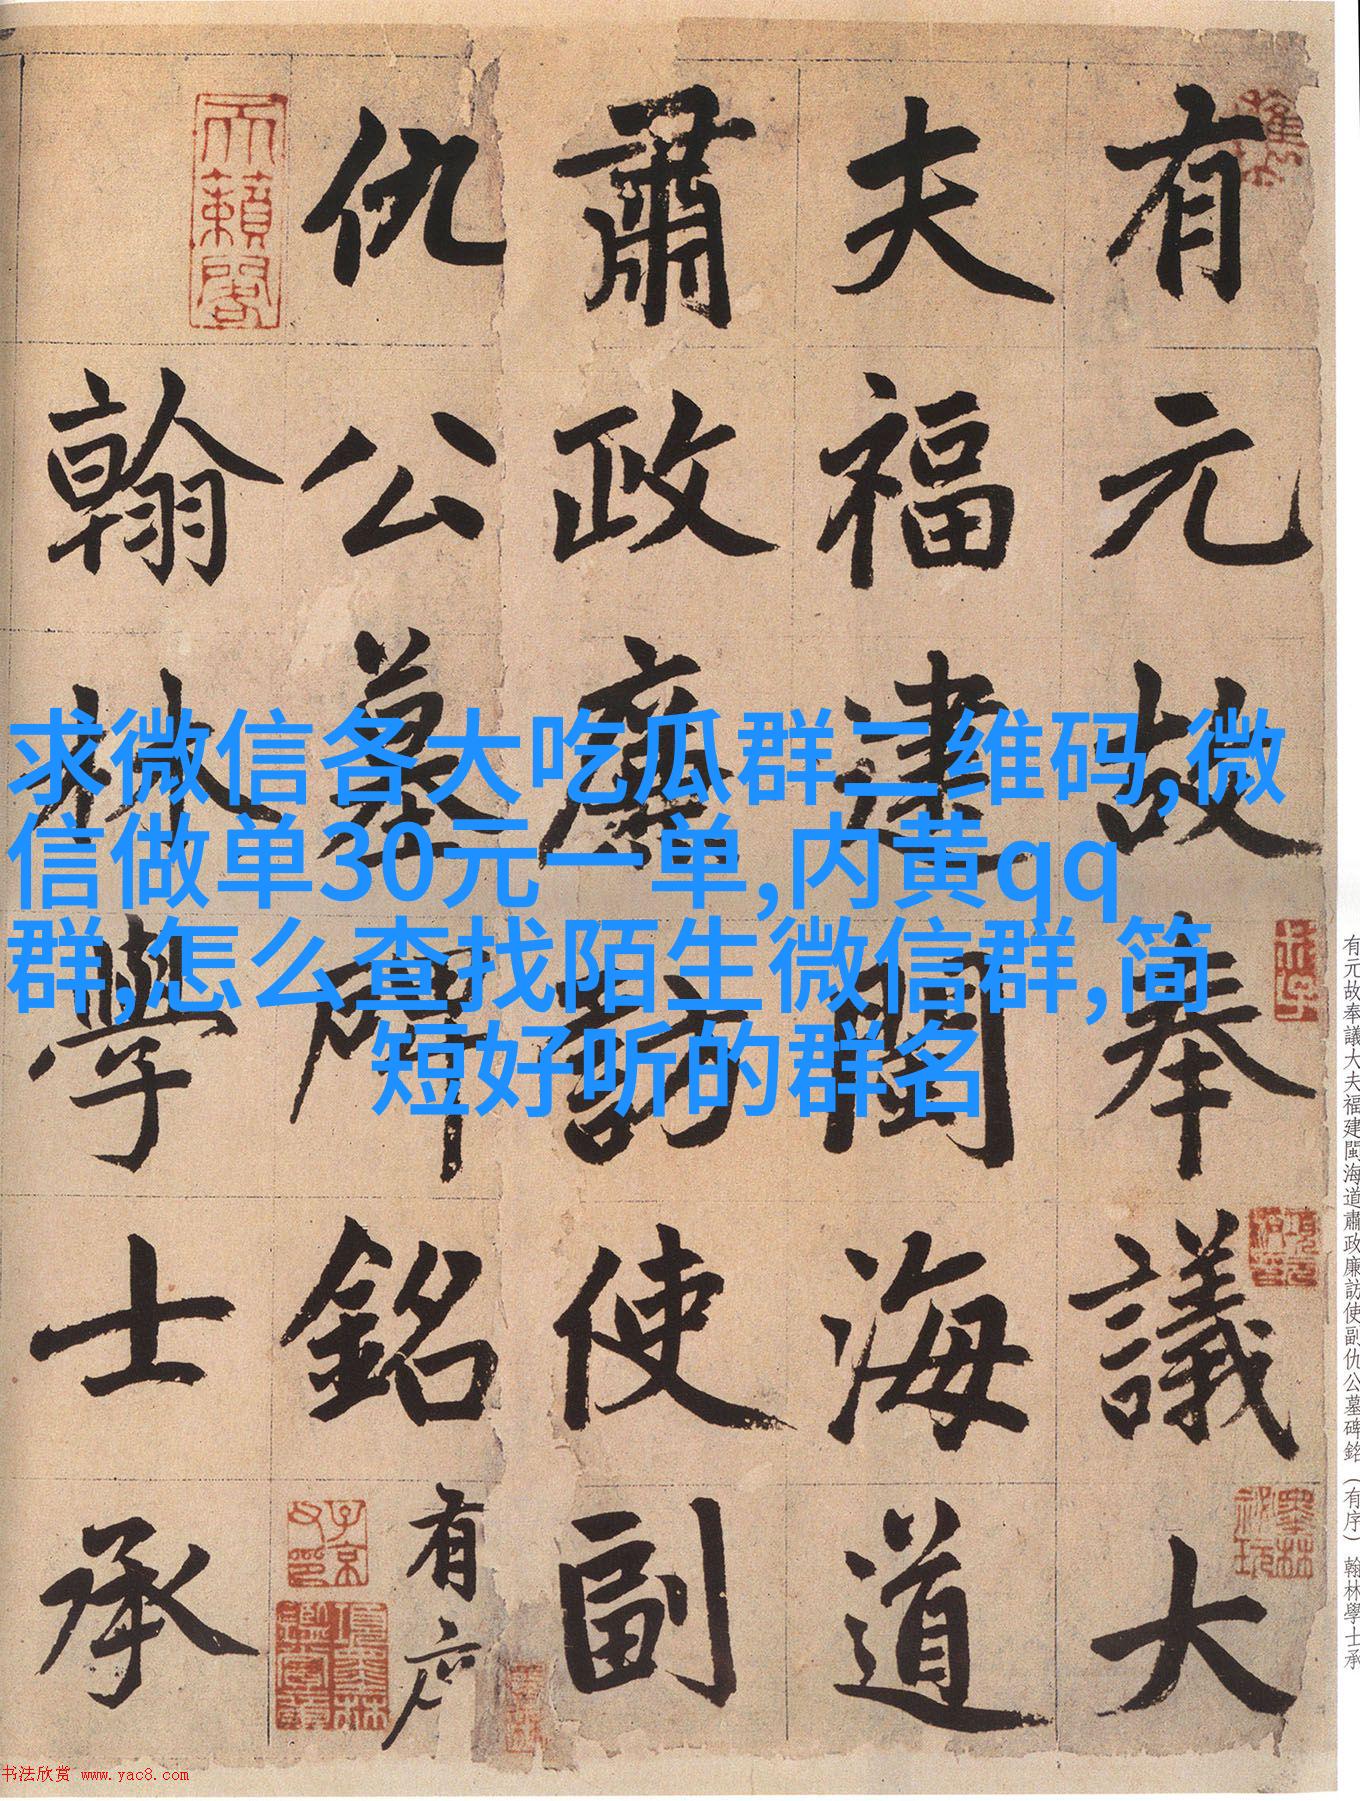 有元故奉議大
夫福建閩海道
肅政廉訪使副
仇公墓碑銘有序
翰林學士承
求微信各大吃瓜群二维码,微
信做单30元一单,内黄qq
群,怎么查找陌生微信群,简
短好听的群名
天籟閣
子京父印
有元故奉議大夫福建閩海道肅政廉訪使副仇公墓碑銘（有序）翰林學士承
书法欣赏 www.yac8.com